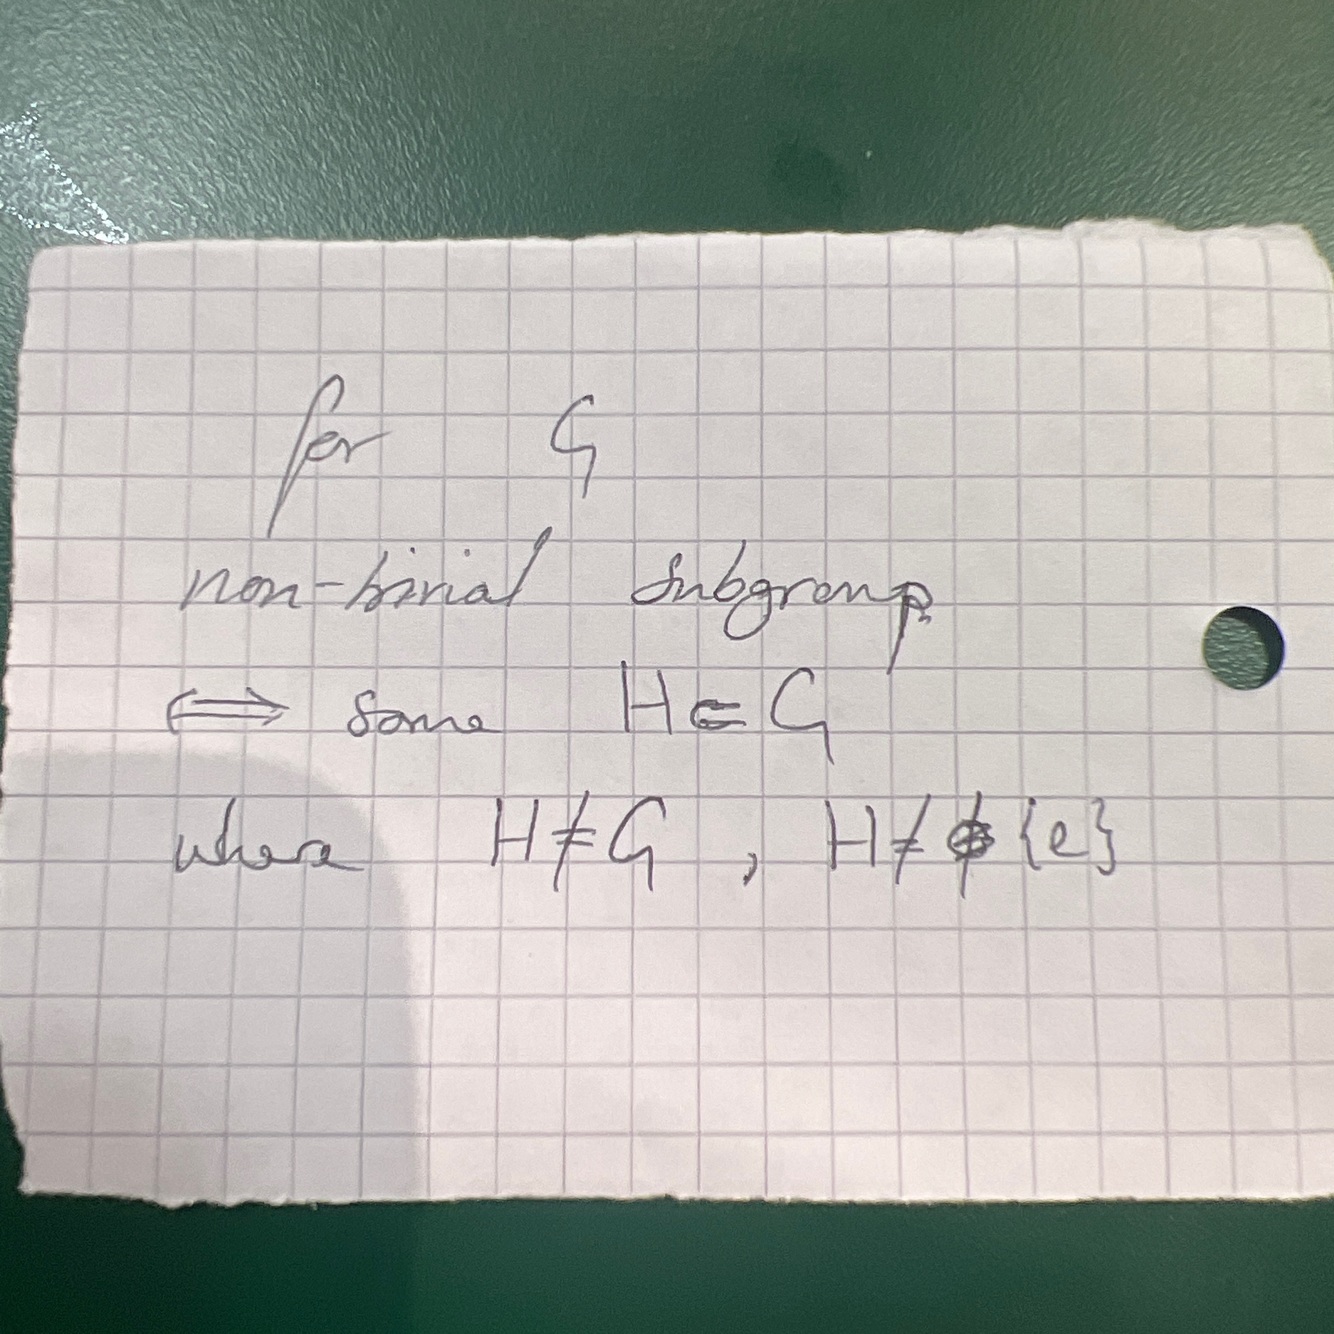 for G
non-trivial subgroup
⟺ some H ⊆ G
where H ≠ G , H ≠ {e}